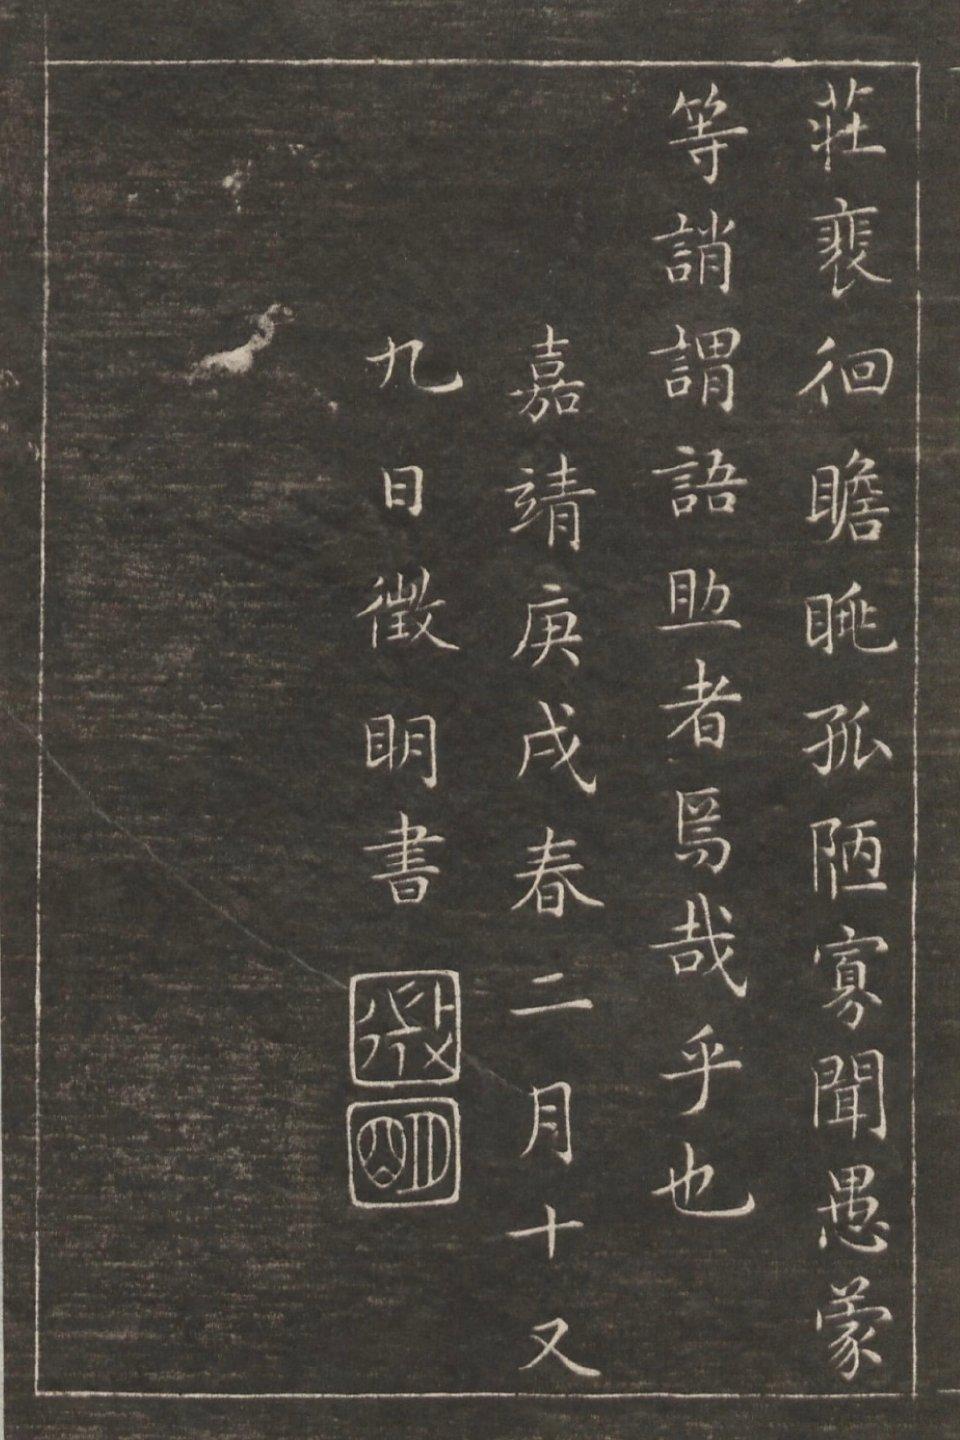 莊裵徊瞻眺孤陋寡聞愚蒙
等誚謂語助者焉哉乎也
嘉靖庚戌春二月十又
九日徵明書